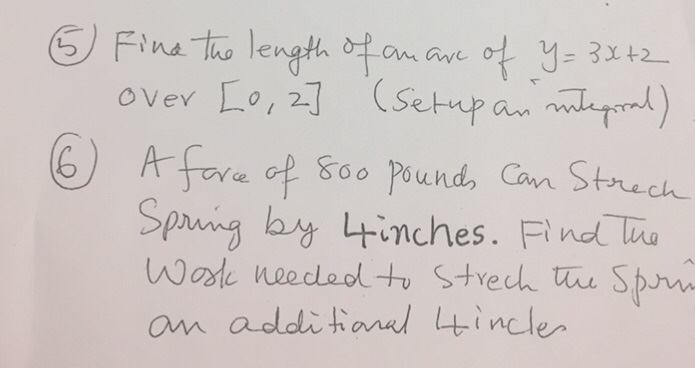 ⑤ Find the length of an arc of y = 3x+2
over [0, 2] (Setup an integral)
⑥ A force of 800 pounds Can Strech
Spring by 4inches. Find The
Work needed to Strech the Sprin
an additional 4incles